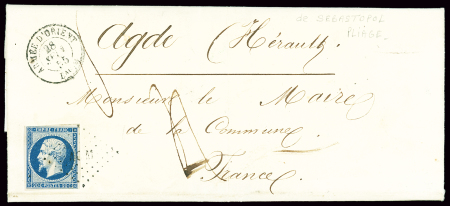 de SEBASTOPOL
PLIAGE.
ARMÉE D'ORIENT
28
55
Agde (Hérault)
Monsieur le Maire
de la Commune
France
EMPIRE FRANC